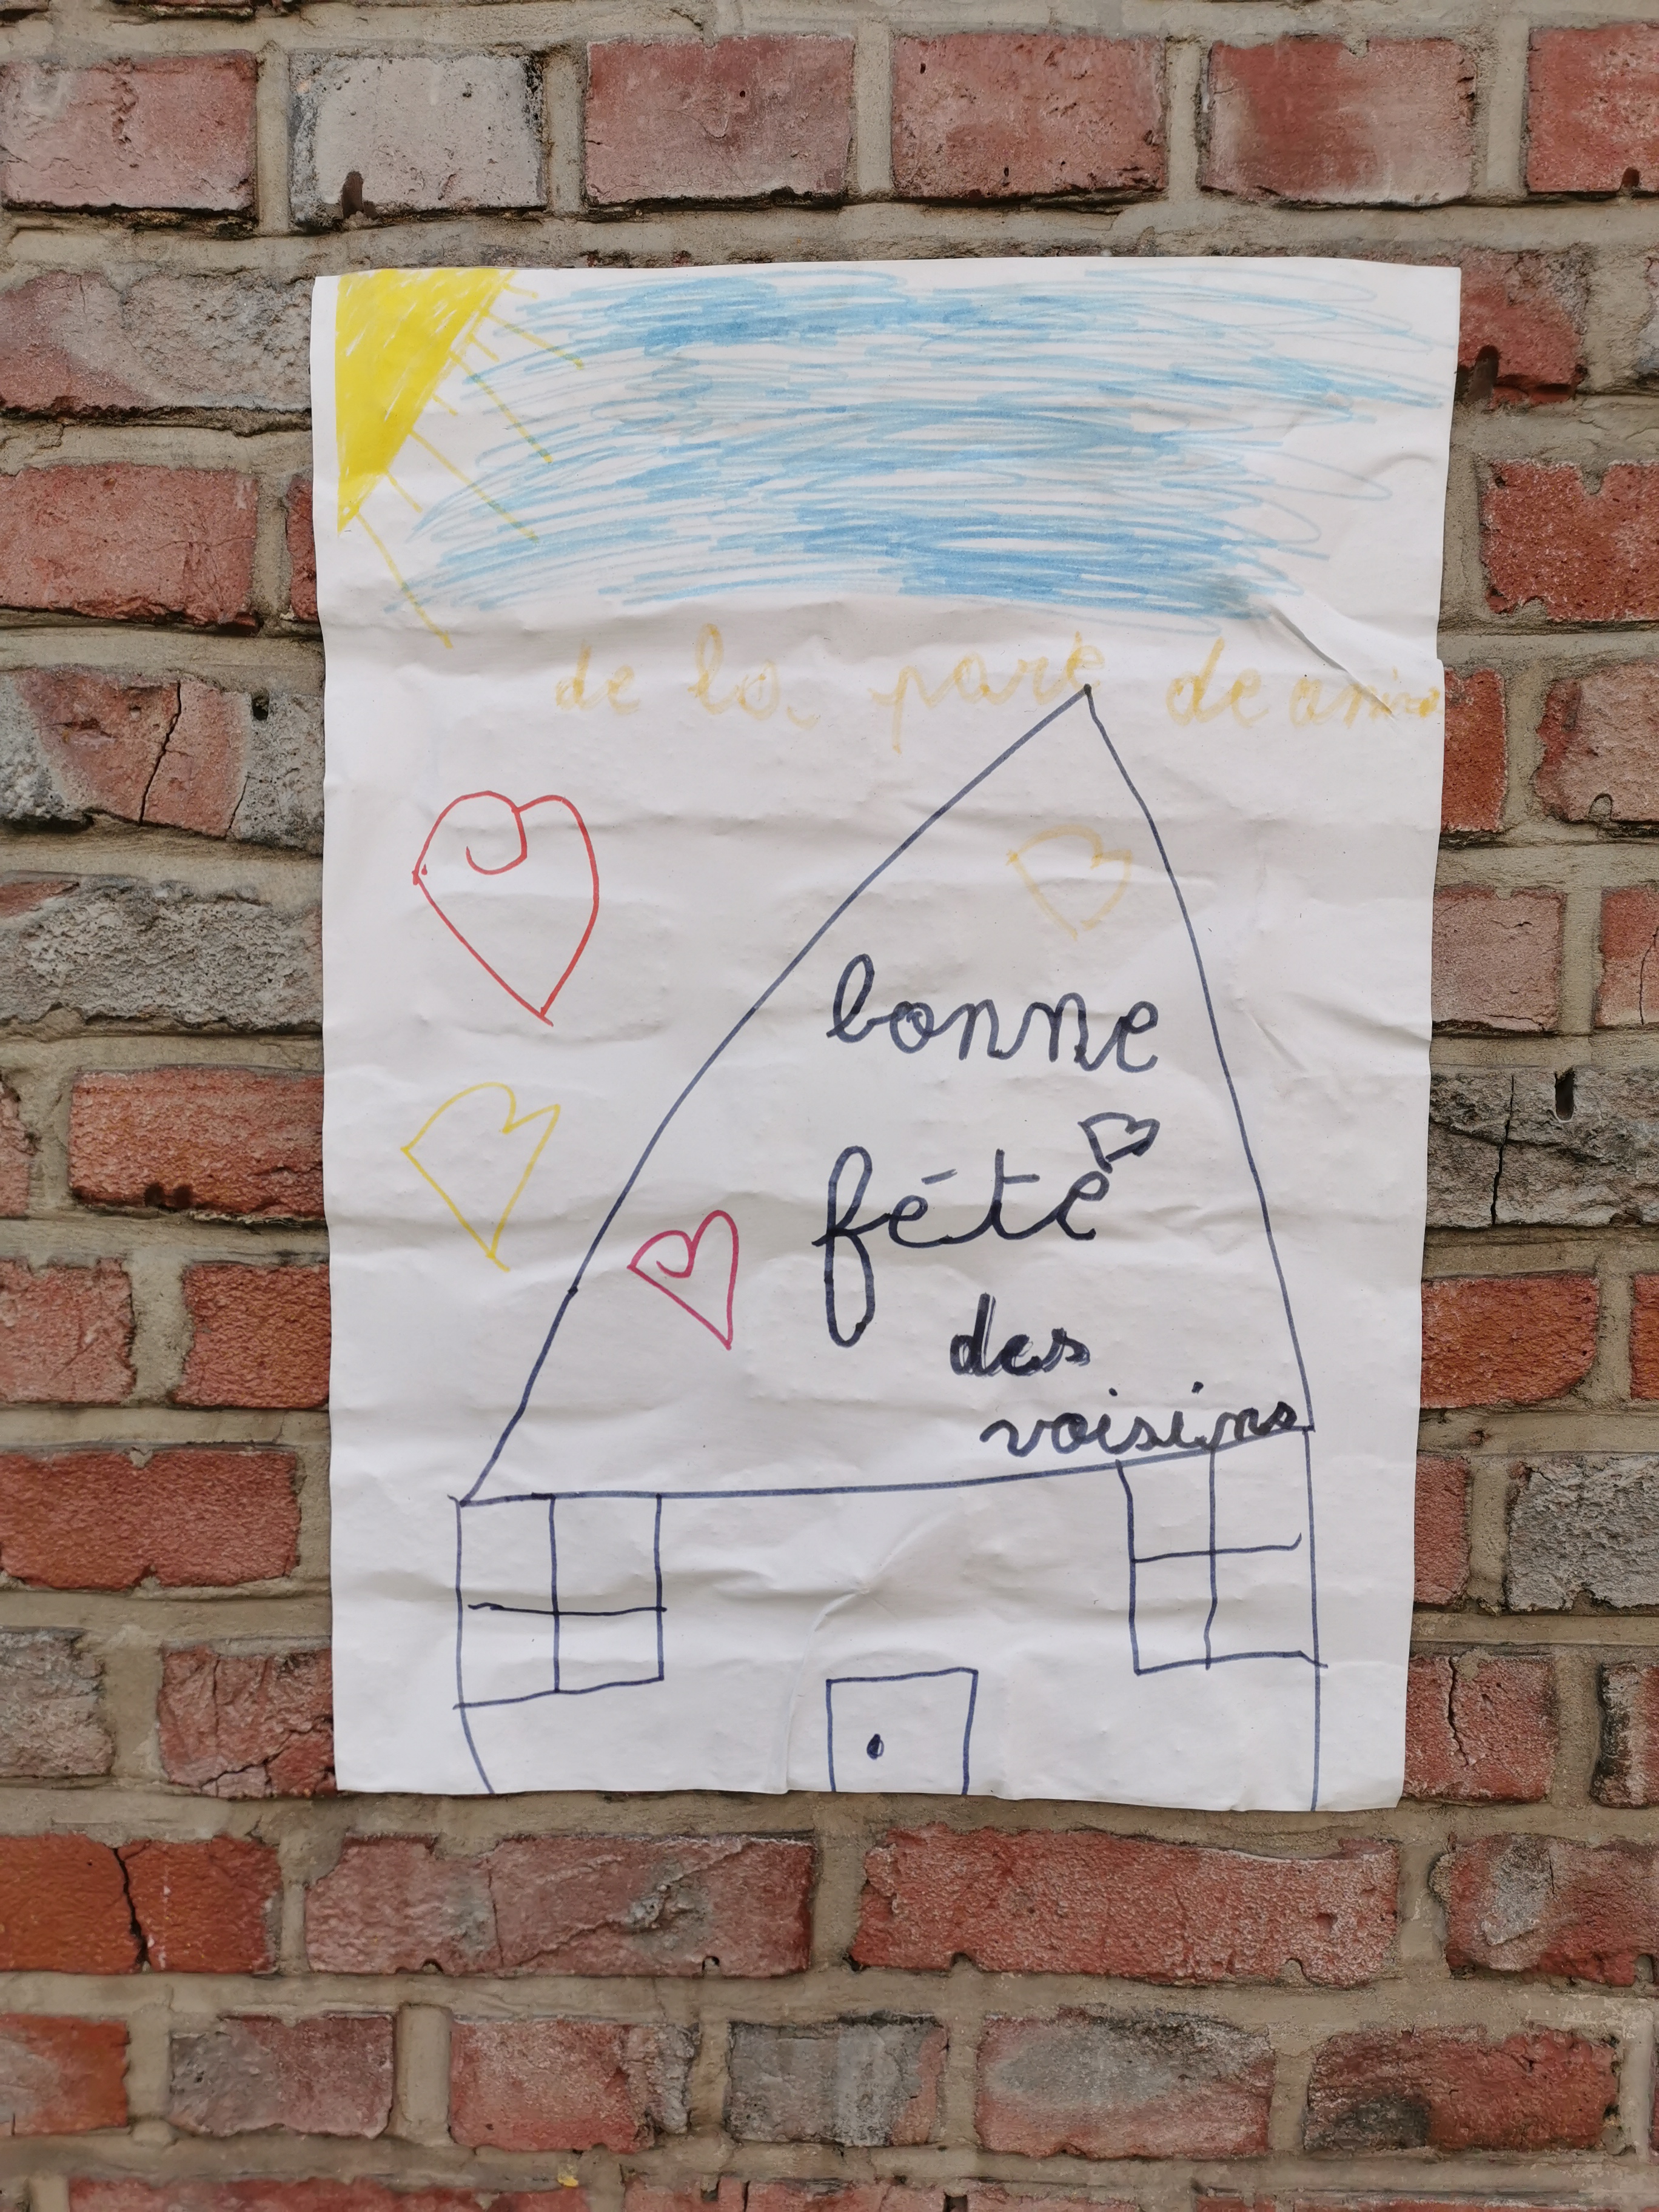 de la part de
bonne
féte
des
voisins